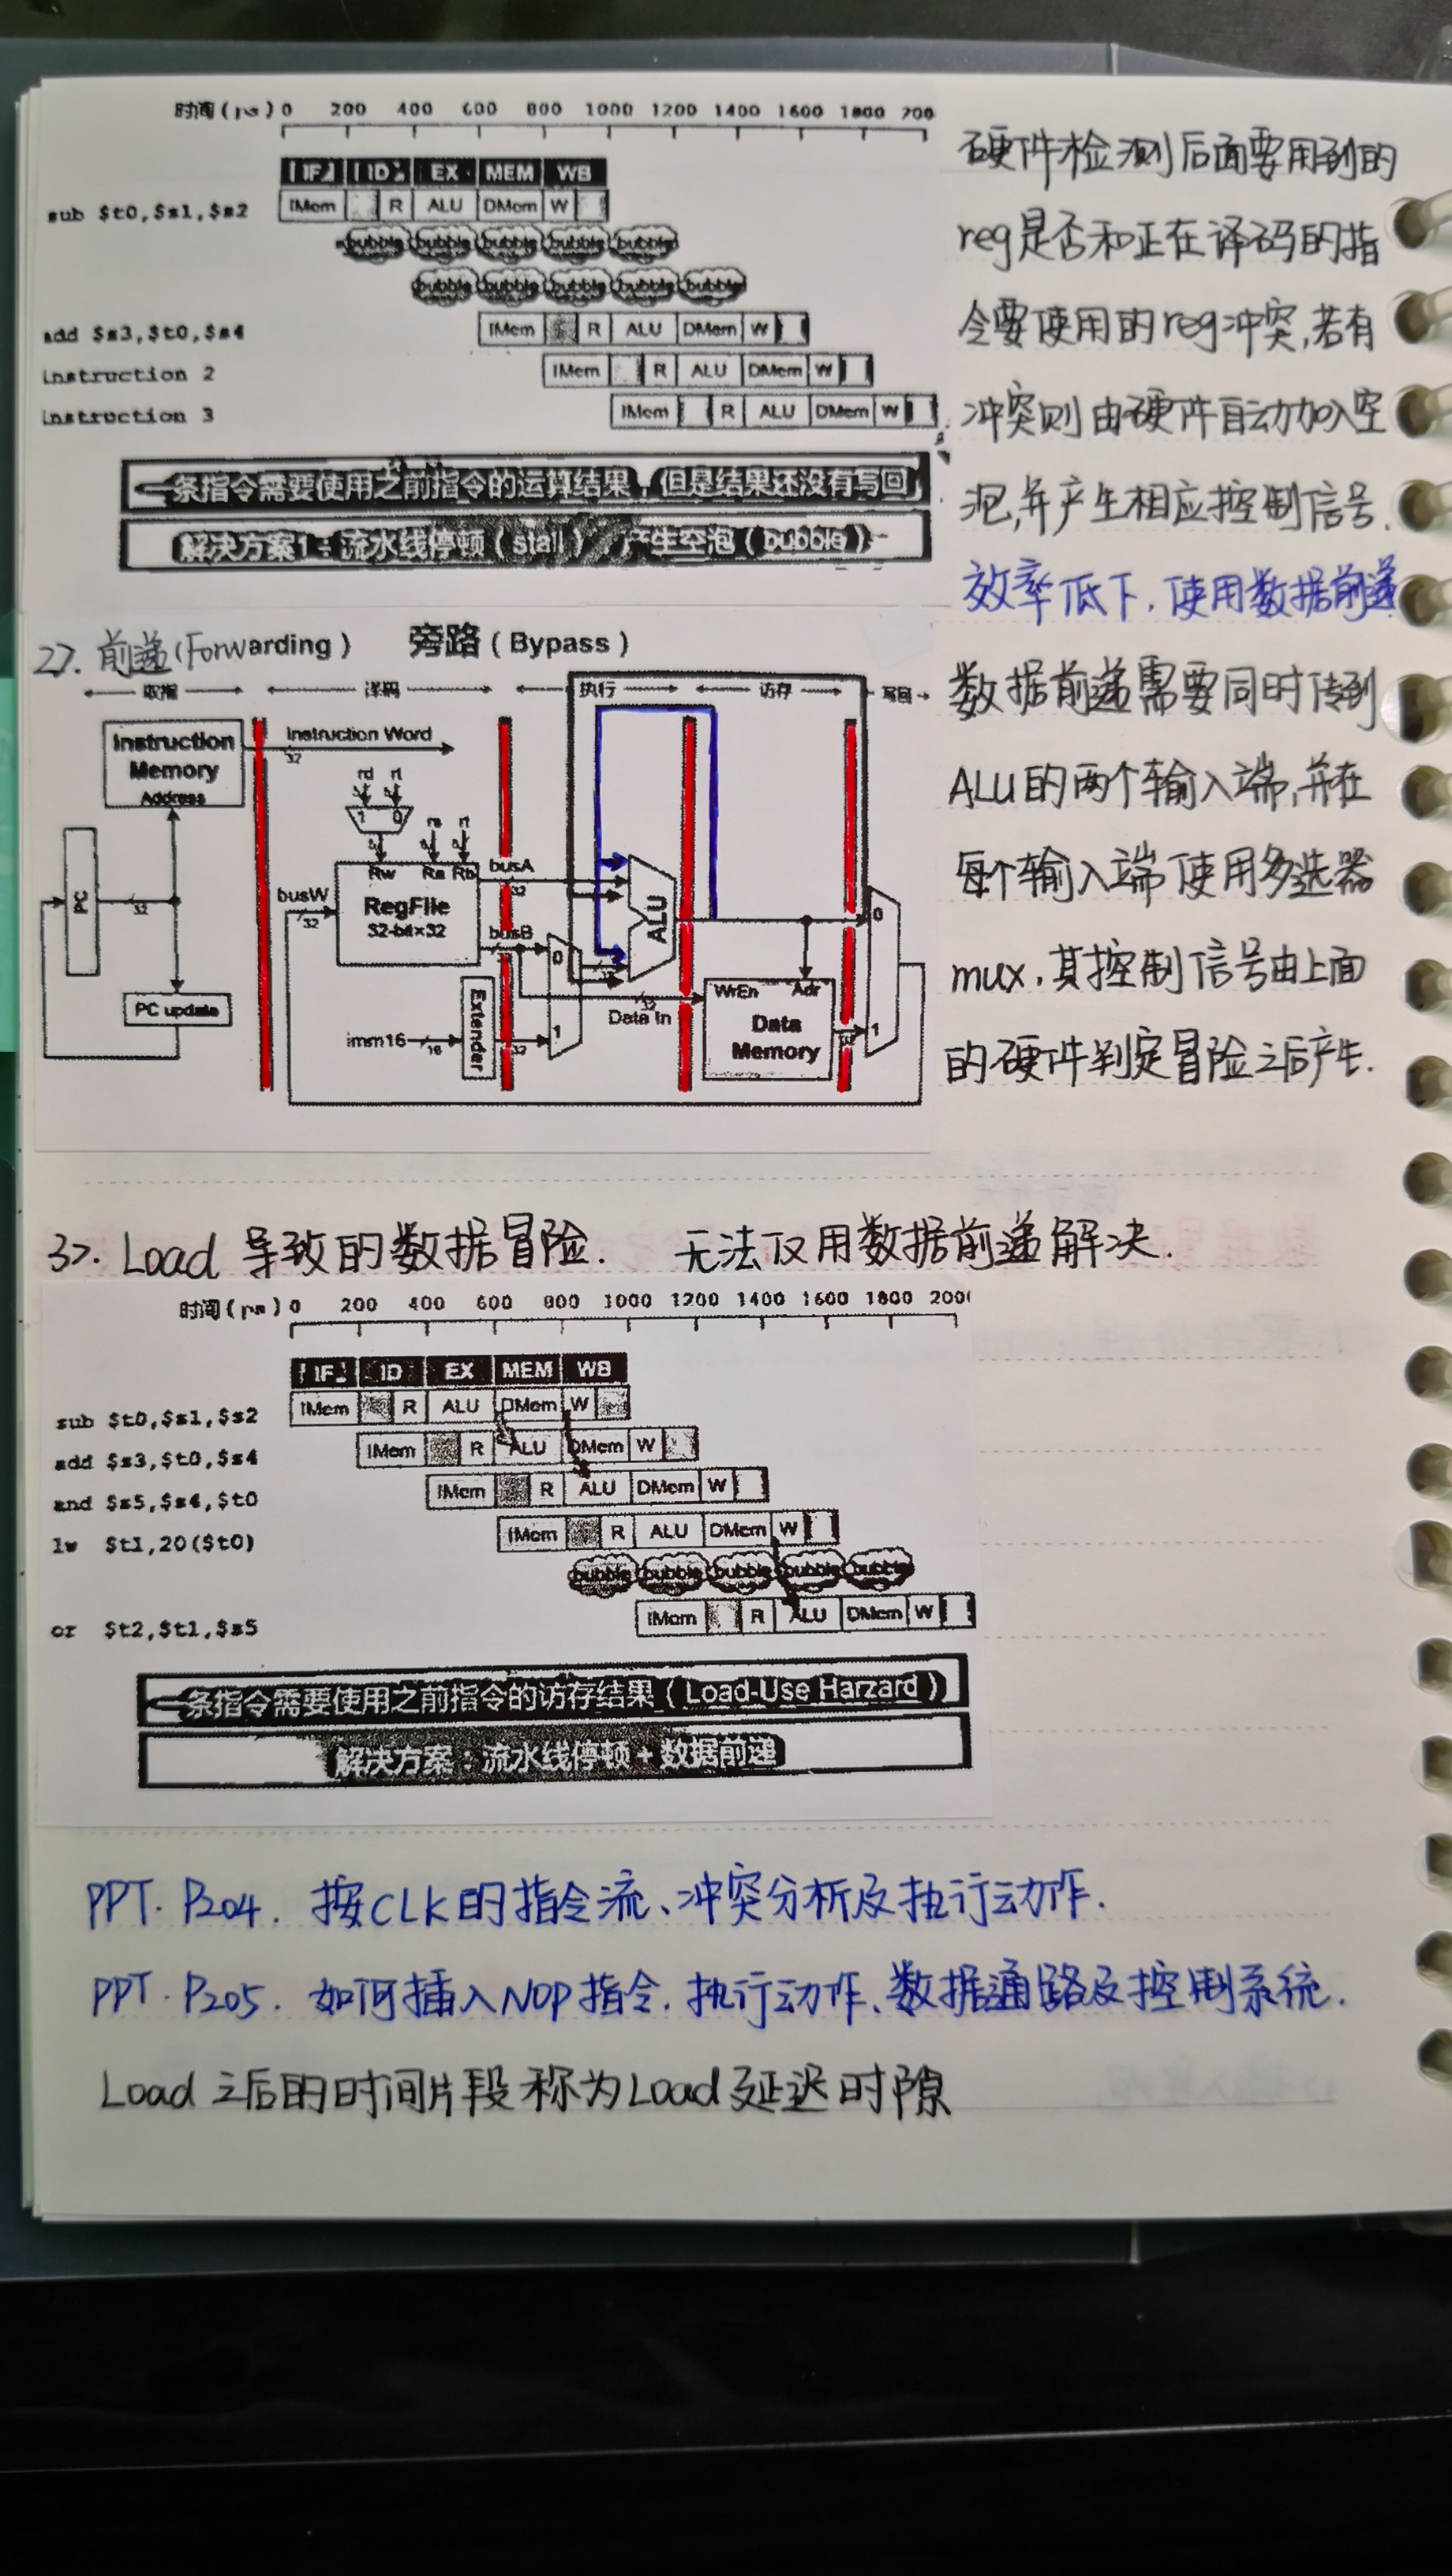 时间(ps) 0 200 400 600 800 1000 1200 1400 1600 1800 200
IF ID EX MEM WB
sub $t0,$s1,$s2 IMem R ALU DMem W
bubble bubble bubble bubble bubble
bubble bubble bubble bubble bubble
add $s3,$t0,$s4 IMem R ALU DMem W
instruction 2 IMem R ALU DMem W
instruction 3 IMem R ALU DMem W
一条指令需要使用之前指令的运算结果，但是结果还没有写回
解决方案1：流水线停顿（stall），产生空泡（bubble）
硬件检测后面要用到的
reg是否和正在译码的指
令要使用的reg冲突,若有
冲突则由硬件自动加入空
泡,并产生相应控制信号.
效率低下.使用数据前递
2>. 前递(Forwarding) 旁路(Bypass)
取指 译码 执行 访存 写回
Instruction Memory Address
Instruction Word
32
rd rt
1 0
rs rt
PC
32
busW
32
Rw Ra Rb
RegFile
32-bit×32
busA
32
busB
PC update
imm16
16
Extender
32
0
1
ALU
32
Data In
WrEn Adr
Data
Memory
0
1
数据前递需要同时传到
ALU的两个输入端,并在
每个输入端使用多选器
mux.其控制信号由上面
的硬件判定冒险之后产生.
3>. Load 导致的数据冒险. 无法仅用数据前递解决.
时间(ps) 0 200 400 600 800 1000 1200 1400 1600 1800 200
IF ID EX MEM WB
sub $t0,$s1,$s2 IMem R ALU DMem W
add $s3,$t0,$s4 IMem R ALU DMem W
and $s5,$s4,$t0 IMem R ALU DMem W
lw $t1,20($t0) IMem R ALU DMem W
bubble bubble bubble bubble bubble
or $t2,$t1,$s5 IMem R ALU DMem W
一条指令需要使用之前指令的访存结果（Load-Use Harzard）
解决方案：流水线停顿+数据前递
PPT. P204. 按CLK的指令流、冲突分析及执行动作.
PPT. P205. 如何插入NOP指令.执行动作、数据通路及控制系统.
Load 之后的时间片段称为Load延迟时隙